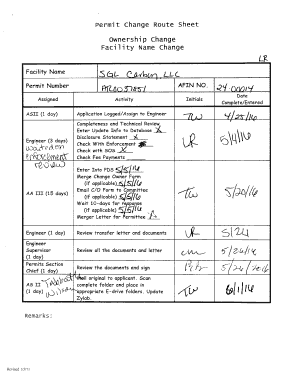 Permit Change Route Sheet
Ownership Change
Facility Name Change
LR
Facility Name SGL Carbon, LLC
Permit Number AFIN NO. 24-00014
Assigned Activity Initials Date Complete/Entered
ASII (1 day) Application Logged/Assign to Engineer TW 4/25/16
Engineer (3 days) waited on enforcement review
Completeness and Technical Review
Enter Update Info to Database X
Disclosure Statement X
Check With Enforcement X
Check with SOS X
Check Fee Payments
LR 5/4/16
AA III (15 days)
Enter Into PDS 5/5/16
Merge Change Owner Form
(if applicable) 5/5/16
Email C/D Form to Committee
(if applicable) 5/5/16
Wait 10-days for response
(if applicable) 5/5/16
Merger Letter for Permittee
TW 5/20/16
Engineer (1 day) Review transfer letter and documents LR 5/24
Engineer Supervisor (1 day) Review all the documents and letter 5/26/16
Permits Section Chief (1 day) Review the documents and sign 5/26/2016
AS II (1 day)
Mail original to applicant. Scan
complete folder and place in
appropriate E-drive folders. Update
Zylab.
TW 6/1/16
Remarks: